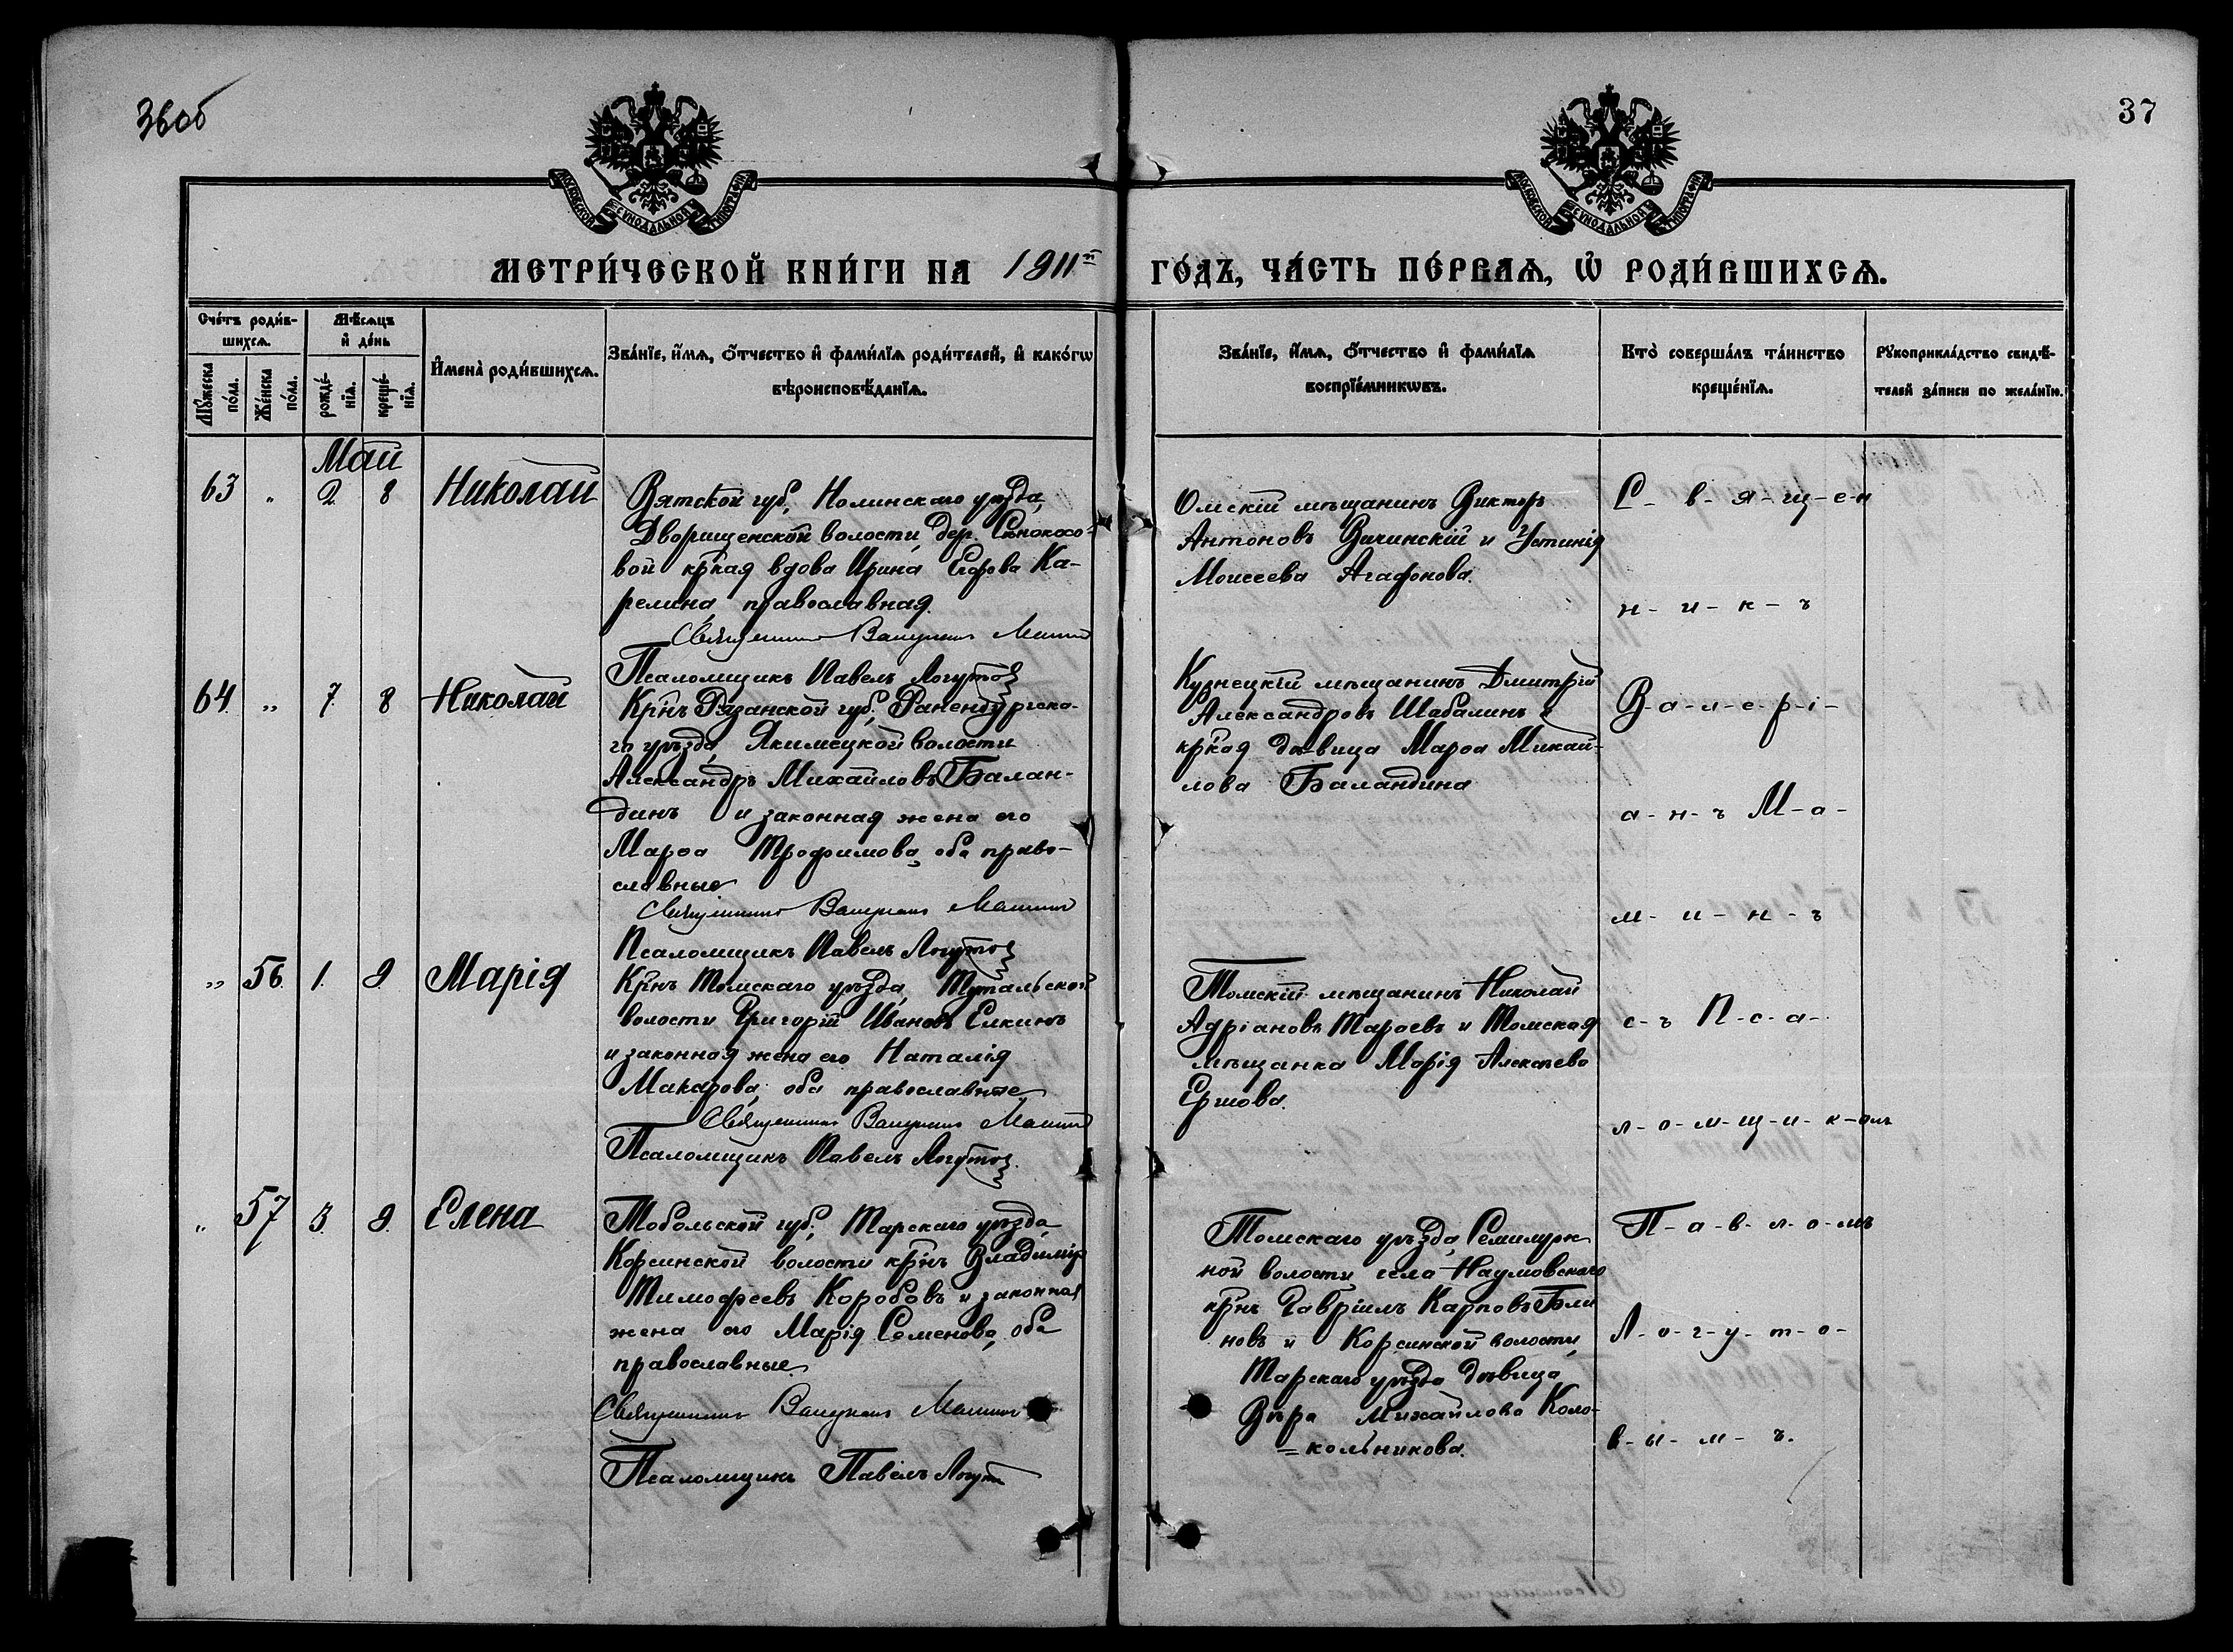 36об
37
МОСКОВСКОЙ СѴНОДАЛЬНОЙ ТИПОГРАФІИ
МОСКОВСКОЙ СѴНОДАЛЬНОЙ ТИПОГРАФІИ
МЕТРИ́ЧЕСКОЙ КНИ́ГИ НА 1911й ГО́ДЪ, ЧА́СТЬ ПЕ́РВАѦ, Ѡ҆ РОДИ́ВШИХСѦ.
Сче́тъ роди́в-
шихсѧ.
Мꙋ́жеска по́ла.
Же́нска по́ла.
Мѣ́сѧцъ
и҆ де́нь
рожде́-
нїѧ.
креще́-
нїѧ.
И҆мена̀ роди́вшихсѧ.
Зва́нїе, и҆́мѧ, ѻ҆́тчество и҆ фами́лїѧ роди́телей, и҆ како́гѡ
вѣроисповѣ́данїѧ.
Зва́нїе, и҆́мѧ, ѻ҆́тчество и҆ фами́лїѧ
воспрїе́мникѡвъ.
Кто̀ соверша́лъ та́инство
креще́нїѧ.
Рꙋкоприкла́дство свидѣ́-
телей за́писи по жела́нїю.
Май
63 " 2 8 Николай
Вятской губ., Нолинскаго уѣзда,
Дворищенской волости, дер. Сѣнокосо-
вой кр̃кая вдова Ирина Егорова Ка-
релина православная.
Священникъ Валеріанъ Маминъ
Псаломщикъ Павелъ Логутов
Омскій мѣщанинъ Викторъ
Антоновъ Вачинскій и Устинія
Моисеева Агафонова.
64. " 7. 8 Николай
Кр̃нъ Рязанской губ., Раненбургска-
го уѣзда, Якимецкой волости
Александръ Михайловъ Балан-
динъ и законная жена его
Марѳа Трофимова, оба право-
славные
Священникъ Валеріанъ Маминъ
Псаломщикъ Павелъ Логутов
Кузнецкій мѣщанинъ Дмитрій
Александровъ Шабалинъ и
кр̃кая дѣвица Марѳа Михай-
лова Баландина
" 56. 1. 9 Марія
Кр̃нъ Томскаго уѣзда, Тутальской
волости Григорій Ивановъ Елкинъ
и законная жена его Наталія
Макарова, оба православные
Священникъ Валеріанъ Маминъ
Псаломщикъ Павелъ Логутов.
Томскій мѣщанинъ Николай
Адріановъ Тараевъ и Томская
мѣщанка Марія Алексѣева
Ершова.
" 57 3. 9. Елена
Тобольской губ., Тарскаго уѣзда
Корсинской волости кр̃нъ Владиміръ
Тимофеевъ Коробовъ и законная
жена его Марія Семенова, оба
православные.
Священникъ Валеріанъ Маминъ
Псаломщикъ Павелъ Логут
Томскаго уѣзда, Семилуж
ной волости, села Наумовскаго
кр̃нъ Гавріилъ Карповъ Бли
новъ и Корсинской волости,
Тарскаго уѣзда дѣвица
Вѣра Михайлова Коло-
=кольникова.
С- в- я- щ- е- н
н- и- к- ъ
В- а- л- е- р- і-
а- н- ъ М- а-
м- и- н- ъ
с- ъ П- с- а-
л- о- м- щ- и- к- омъ
П- а- в- л- о- мъ
Л- о- г- у- т- о-
в- ы- м- ъ.